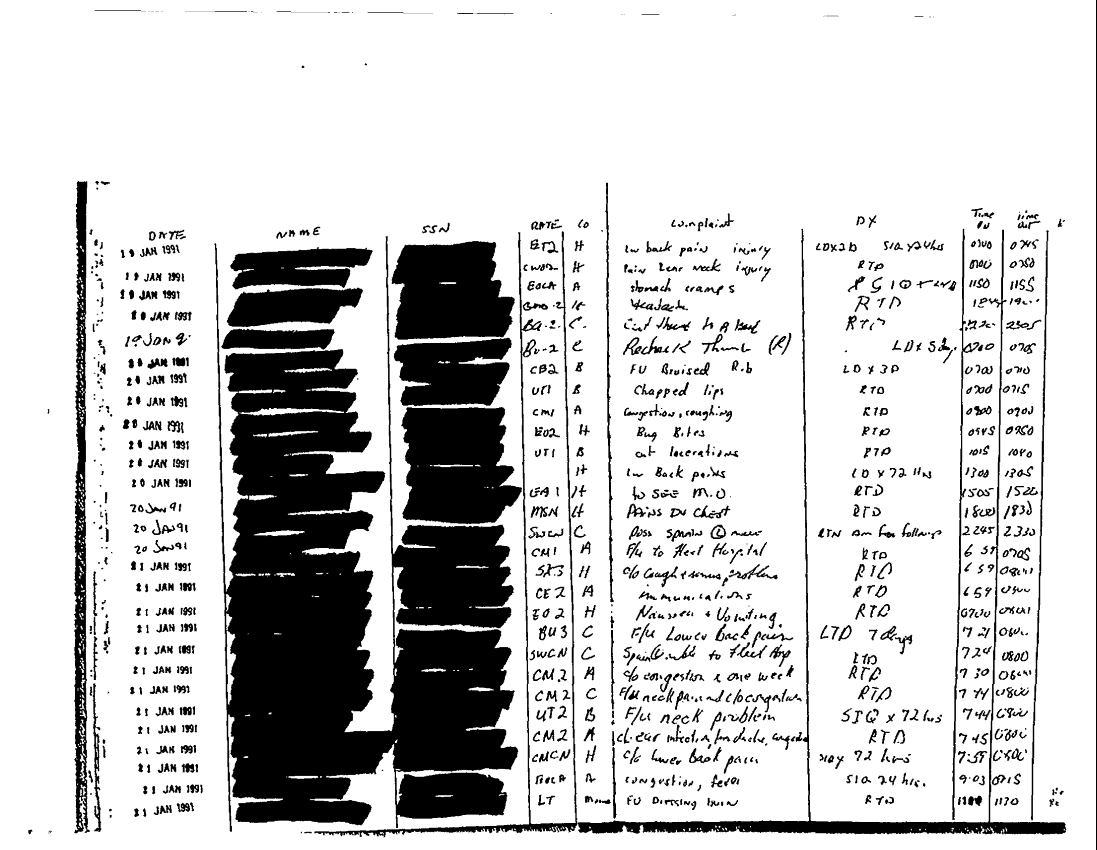 DATE NAME SSN RATE CO Complaint DX Time In Time Out
19 JAN 1991 ET2 H Lw back pain injury LDx2D SIQ x24hrs 0700 0745
19 JAN 1991 H Pain Rear neck injury RTD 0700 0750
19 JAN 1991 EOCA A stomach cramps 1150 1155
20 JAN 1991 H Headache RTD
19 Jan 9 BU-2 C. Cut thumb RTD 2305
20 JAN 1991 BU-2 C Recheck Thumb (R) LD x 5 day 0700 0705
20 JAN 1991 CB2 B FU Bruised Rib LD x 3D 0700 0710
20 JAN 1991 UT1 B Chapped lips RTD 0700 0715
20 JAN 1991 CM1 A Congestion, coughing RTD 0800 0900
20 JAN 1991 EO2 H Bug Bites RTD 0945 0950
20 JAN 1991 UT1 B cut lacerations RTD 1015 1040
20 JAN 1991 H Lw Back pains LD x 72 Hrs 1300 1305
20 JAN 1991 EA1 H to SEE M.O. RTD 1505 1520
20 Jan 91 MSN H Pains IN Chest RTD 1800 1830
20 Jan 91 SWCN C Poss sprain (L) RTN Am for followup 2245 2330
20 Jan 91 CM1 A F/u to Fleet Hospital RTD 6 57 0705
21 JAN 1991 SK3 H c/o Cough & sinus problem RTD 6 59
21 JAN 1991 CE2 A immunizations RTD 659 0800
21 JAN 1991 EO2 H Nausea + Vomiting RTD 0700
21 JAN 1991 BU3 C F/u Lower Back pain LTD 7 days 7 21
21 JAN 1991 SWCN C to Fleet Hosp RTD 724 0800
21 JAN 1991 CM2 A c/o congestion x one week RTD 7 30
21 JAN 1991 CM2 C F/u neck pain and c/o congestion RTD 7 44 0800
21 JAN 1991 UT2 B F/u neck problem SIQ x 72 hrs 744 0800
21 JAN 1991 CM2 A ear infection, headache, RTD 745 0800
21 JAN 1991 CMCN H c/o Lower Back pain 72 hrs 7:55 0800
21 JAN 1991 EOCA A congestion, fever SIQ 24 hrs. 9:03 0915
21 JAN 1991 LT FU Dressing burn RTD 1130